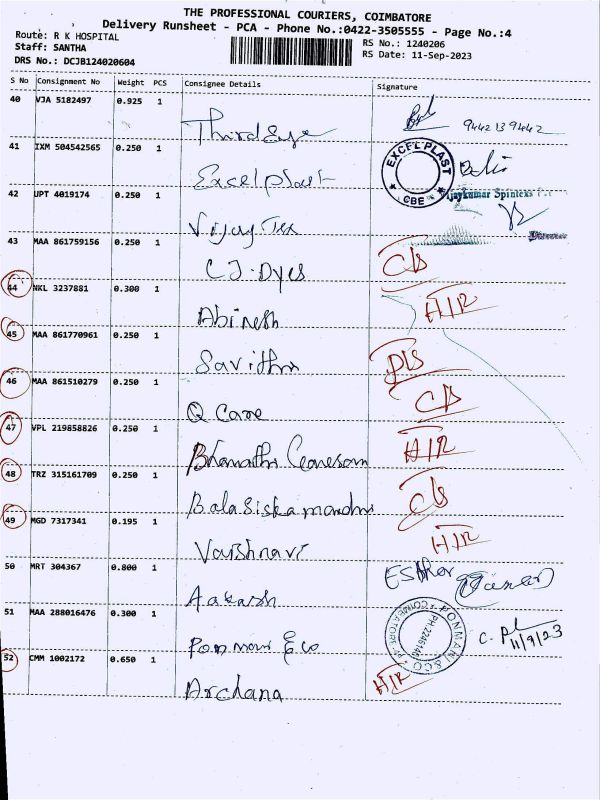 THE PROFESSIONAL COURIERS, COIMBATORE
Delivery Runsheet - PCA - Phone No.:0422-3505555 - Page No.:4
Route: R K HOSPITAL
Staff: SANTHA
DRS No.: DCJB124020604
RS No.: 1240206
RS Date: 11-Sep-2023
S No Consignment No Weight PCS Consignee Details Signature
40 VJA 5182497 0.925 1 Third Eye 9442139442
41 IXM 504542565 0.250 1 Excel plast EXCEL PLAST CBE
42 UPT 4019174 0.250 1 Vijay Tex Vijaykumar Spintexs
43 MAA 861759156 0.250 1 C J. Dyes
44 NKL 3237881 0.300 1 Abinesh
45 MAA 861770961 0.250 1 Savithri
46 MAA 861510279 0.250 1 Q Care
47 VPL 219858826 0.250 1
48 TRZ 315161709 0.250 1
49 MGD 7317341 0.195 1 Vaishnavi
50 MRT 304367 0.800 1 Aakash Esther
51 MAA 288016476 0.300 1 11/9/23
52 CMM 1002172 0.650 1 Archana